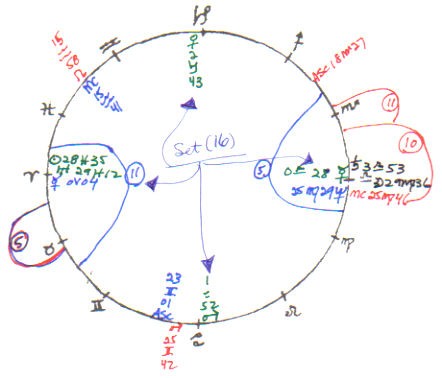 ♑
♀
2
♑
43
♐
ASC 18 ♏ 27
♏
11
10
♒
♓
Set (16)
11
5
☉28 ♓ 35
♅ 29 ♓ 12
0 ♈ 04
♈
0 ♎ 28
25 ♍ 29
♄ 3 ♎ 53
♎
☽ 29 ♍ 36
MC 25 ♍ 46
5
♉
♍
♊
23
♊
01
ASC
25
♊
42
♋
1
♋
52
♂
♌